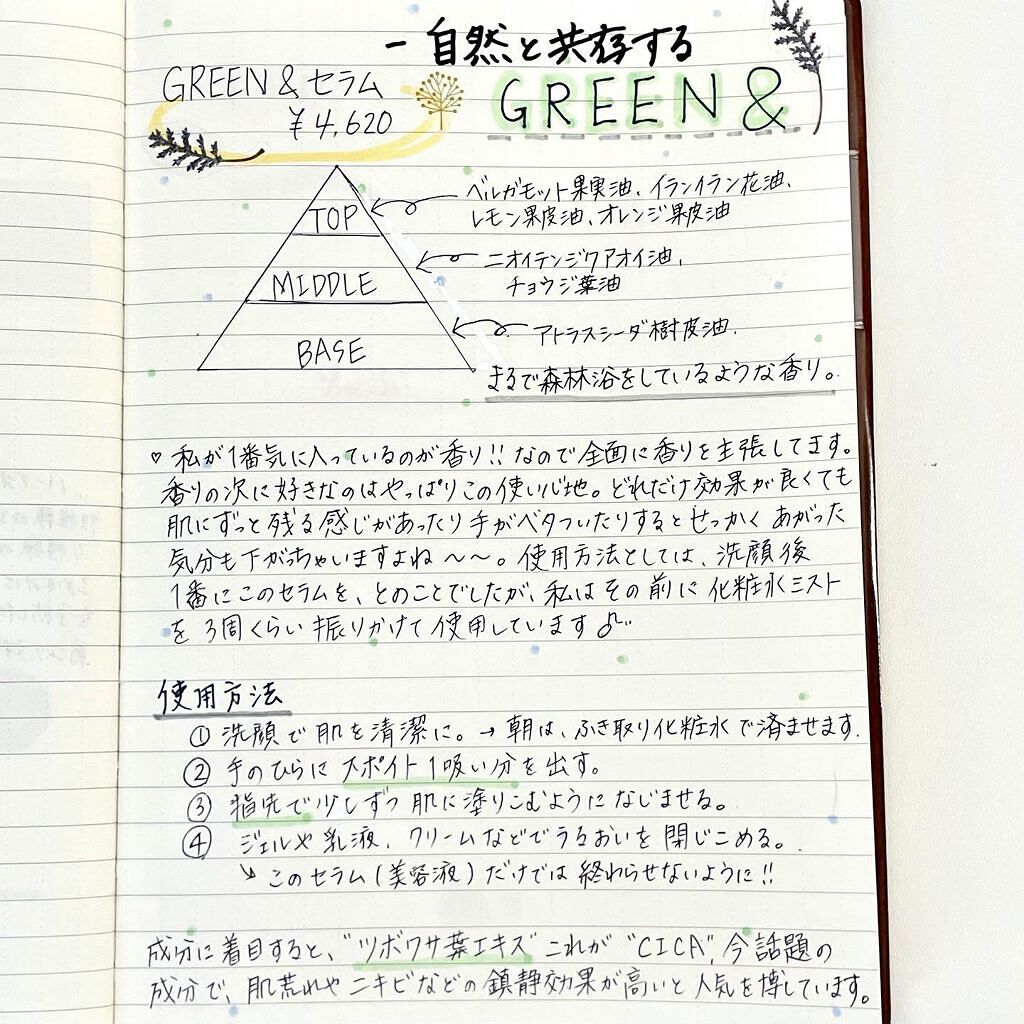 - 自然と共存する
GREEN &
GREEN & セラム
¥4,620
TOP
ベルガモット果実油、イランイラン花油、
レモン果皮油、オレンジ果皮油
MIDDLE
ニオイテンジクアオイ油、
チョウジ葉油
BASE
アトラスシーダ樹皮油.
まるで森林浴をしているような香り。
♡ 私が1番気に入っているのが香り!! なので全面に香りを主張してます。
香りの次に好きなのはやっぱりこの使い心地。どれだけ効果が良くても
肌にずっと残る感じがあったり手がベタついたりするとせっかくあがった
気分も下がっちゃいますよね〜〜。使用方法としては、洗顔後
1番にこのセラムを、とのことでしたが、私はその前に化粧水ミスト
を3周くらい振りかけて使用しています♪
使用方法
① 洗顔で肌を清潔に。→ 朝は、ふき取り化粧水で済ませます.
② 手のひらにスポイト1吸い分を出す。
③ 指先で少しずつ肌に塗りこむようになじませる。
④ ジェルや乳液、クリームなどでうるおいを閉じこめる。
↘ このセラム(美容液)だけでは終わらせないように!!
成分に着目すると、"ツボクサ葉エキス"これが"CICA",今話題の
成分で、肌荒れやニキビなどの鎮静効果が高いと人気を博しています。